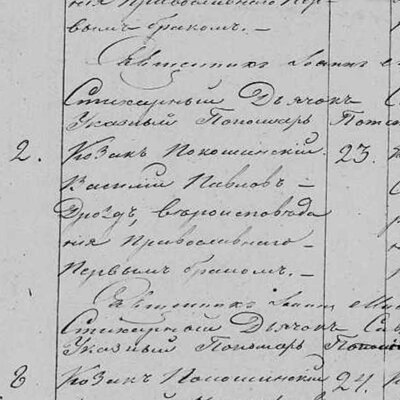 нія Православнаго Пер-
вымъ бракомъ. —
Священникъ Іоаннъ
Стихарный Дьячокъ
Указный Пономарь
2. Козакъ Покошинскій 23.
Василій Павловъ —
Дроздъ, вѣроисповѣда
нія Православнаго —
Первымъ бракомъ. —
Священникъ Іоаннъ
Стихарный Дьячокъ
Указный Пономарь
Козакъ Покошинскій 24.